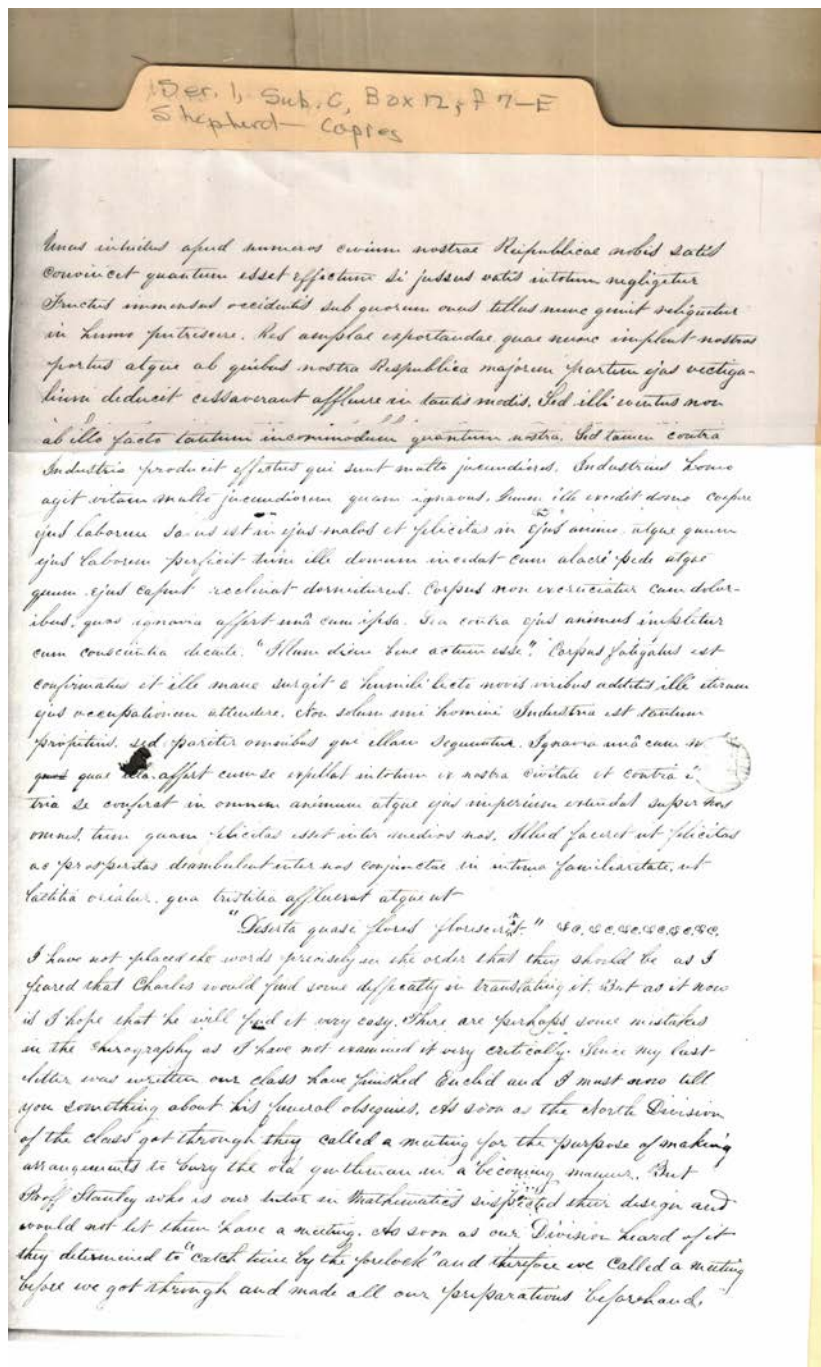 Ser. 1, Sub. C, Box 12, F 7-E
Shepherd - Copies
Unus intuitus apud numeros civium nostrae Reipublicae nobis satis
convincet quantum esset effectum si jussus vatis intotum negligetur
Fructus immensus occidentis sub quorum onus tellus nunc gemit relinquetur
in humo putriscere. Res amplae exportandae quae nunc implent nostros
portus atque ab quibus nostra Respublica majorem partem ejus vectiga-
lium deducit cessaverant affluere in tantis modis. Sed illi eventus non
ab illo facto tantum incommodum quantum nostra. Sed tamen contra
Industria producit effectus qui sunt multo jucundiores. Industrius homo
agit vitam multo jucundiorem quam ignavus. Quum ille excedit domo coepere
ejus laborem sanus est in ejus malos et felicitas in ejus animo, atque quum
ejus laborem perficit tum ille domum incedat cum alacre pede atque
quum ejus caput reclinat dormiturus. Corpus non excruciatur cum dolor-
ibus, quas ignavia affert unâ cum ipsa. Sed contra ejus animus impletur
cum conscientia dicente. "Illum diem bene actum esse". Corpus fatigatus est
confirmatus et ille mane surgit e humili lecto novis viribus additis, ille iterum
ejus occupationem attendere. Non solum uni homini Industria est tantum
propitius, sed pariter omnibus qui illam sequuntur. Ignavia unâ cum
quae affert cum se expellat intotum ex nostra civitate et contra
tria se conferat in omnem animum atque ejus imperium extendat super nos
omnes, tum quam felicitas esset inter medios nos. Illud faceret ut felicitas
ac prosperitas deambulent inter nos conjunctae in intima familiaritate, ut
laetitia oriatur, qua tristitia affluerat atque ut
"Deserta quasi flores florescent." &c. &c. &c. &c. &c. &c.
I have not placed the words precisely in the order that they should be as I
feared that Charles would find some difficulty in translating it. But as it now
is I hope that he will find it very easy. There are perhaps some mistakes
in the chirography as I have not examined it very critically. Since my last
letter was written our class have finished Euclid and I must now tell
you something about his funeral obsequies. As soon as the North Division
of the class got through they called a meeting for the purpose of making
arrangements to bury the old gentleman in a becoming manner. But
Proff Stanley who is our tutor in Mathematics suspected their design and
would not let them have a meeting. As soon as our Division heard of it
they determined to "catch time by the forelock" and therefore we called a meeting
before we got through and made all our preparations beforehand.